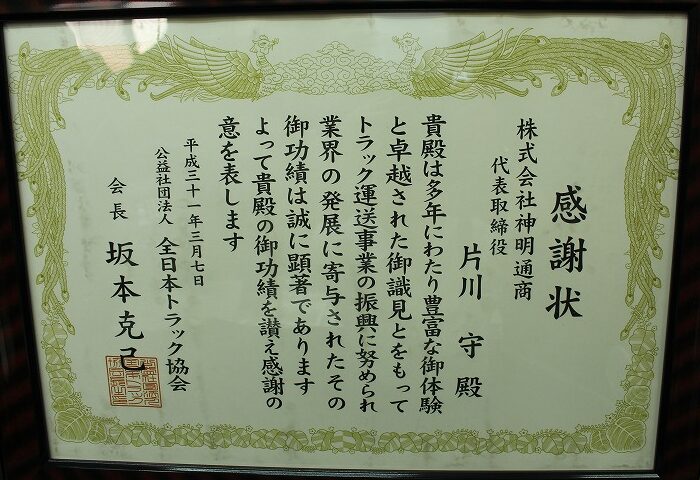 感謝状
株式会社神明通商
代表取締役
片川守殿
貴殿は多年にわたり豊富な御体験
と卓越された御識見とをもって
トラック運送事業の振興に努められ
業界の発展に寄与されたその
御功績は誠に顕著であります
よって貴殿の御功績を讃え感謝の
意を表します
平成三十一年三月七日
公益社団法人 全日本トラック協会
会長 坂本克己